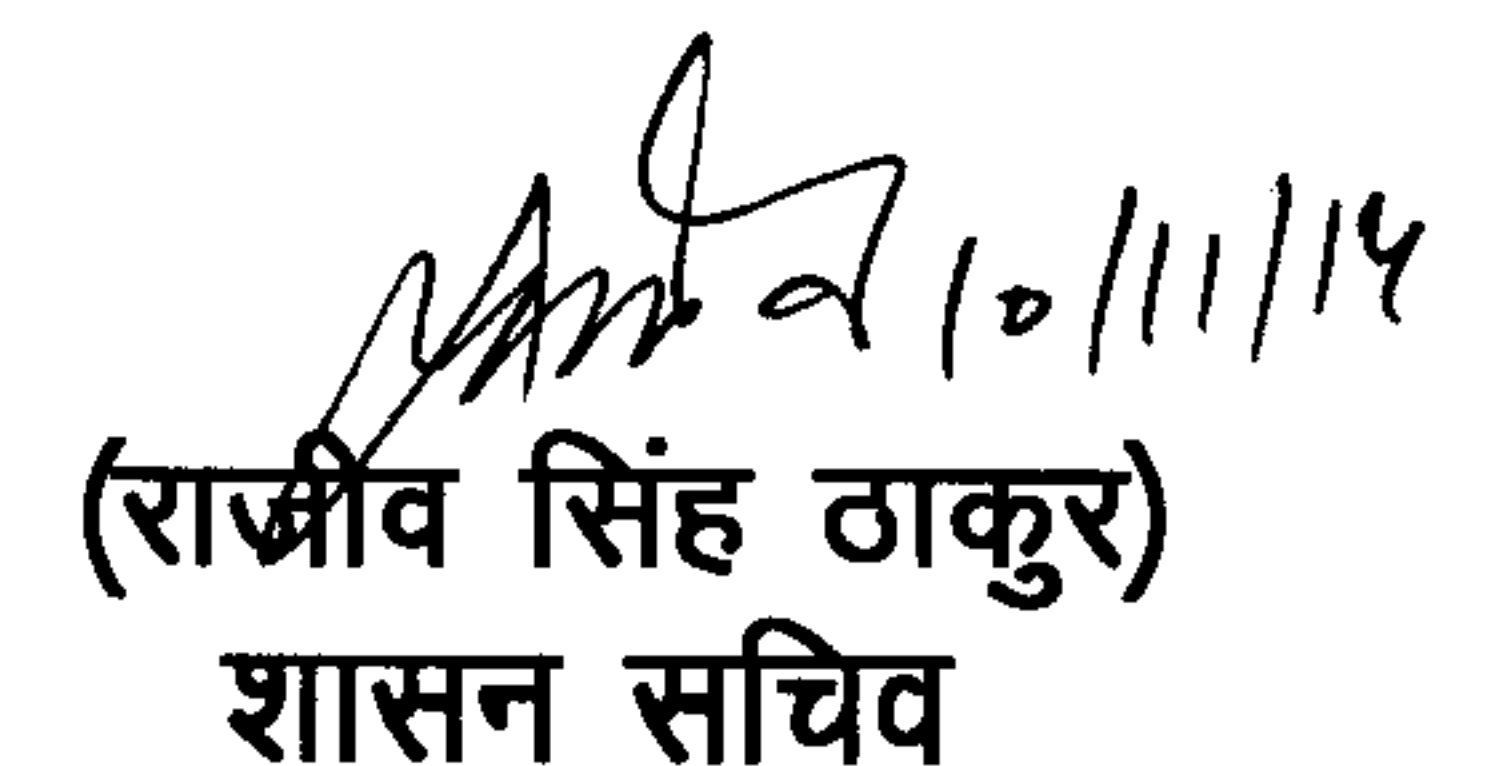 10/11/14
(राजीव सिंह ठाकुर)
शासन सचिव